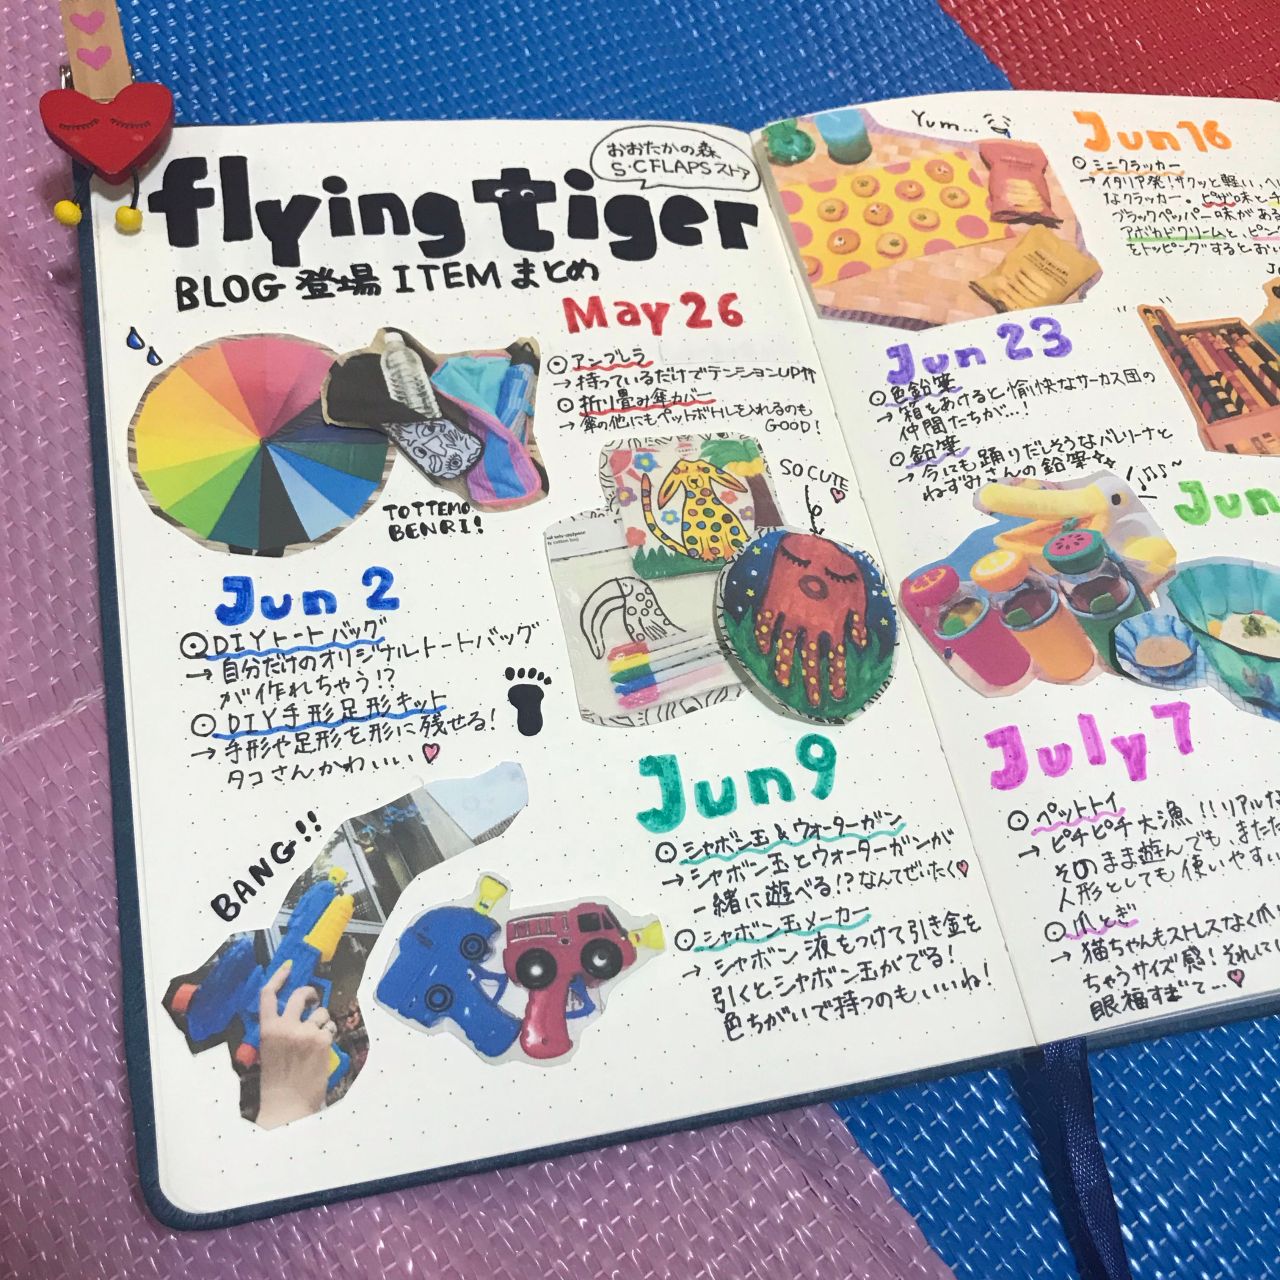 flying tiger
おおたかの森
S・C FLAPSストア
BLOG 登場 ITEM まとめ
May 26
アンブレラ
→ 持っているだけでテンションUP
折り畳み傘カバー
→ 傘の他にもペットボトルを入れるのも
GOOD!
TOTTEMO
BENRI!
SO CUTE
Jun 2
DIYトートバッグ
→ 自分だけのオリジナルトートバッグ
が作れちゃう!?
DIY手形足形キット
→ 手形や足形を形に残せる!
タコさんかわいい♡
BANG!!
Jun 9
シャボン玉&ウォーターガン
→ シャボン玉とウォーターガンが
一緒に遊べる!?なんてぜいたく♡
シャボン玉メーカー
→ シャボン液をつけて引き金を
引くとシャボン玉がでる!
色ちがいで持つのもいいね!
Yum...
Jun 16
ミニクラッカー
→ イタリア発!サクッと軽い、ヘ
なクラッカー。ピザ味と
ブラックペッパー味がある
アボカドクリームと、ピン
をトッピングするとおい
Jun 23
色鉛筆
→ 箱をあけると愉快なサーカス団の
仲間たちが...!
鉛筆
→ 今にも踊りだしそうなバレリーナと
ねずみさんの鉛筆
Jun
July 7
ペットトイ
→ ピチピチ大漁!!リアルな
そのまま遊んでも、またた
人形としても使いやすい
爪とぎ
→ 猫ちゃんもストレスなく爪
ちゃうサイズ感!それしても
眼福すぎて...♡